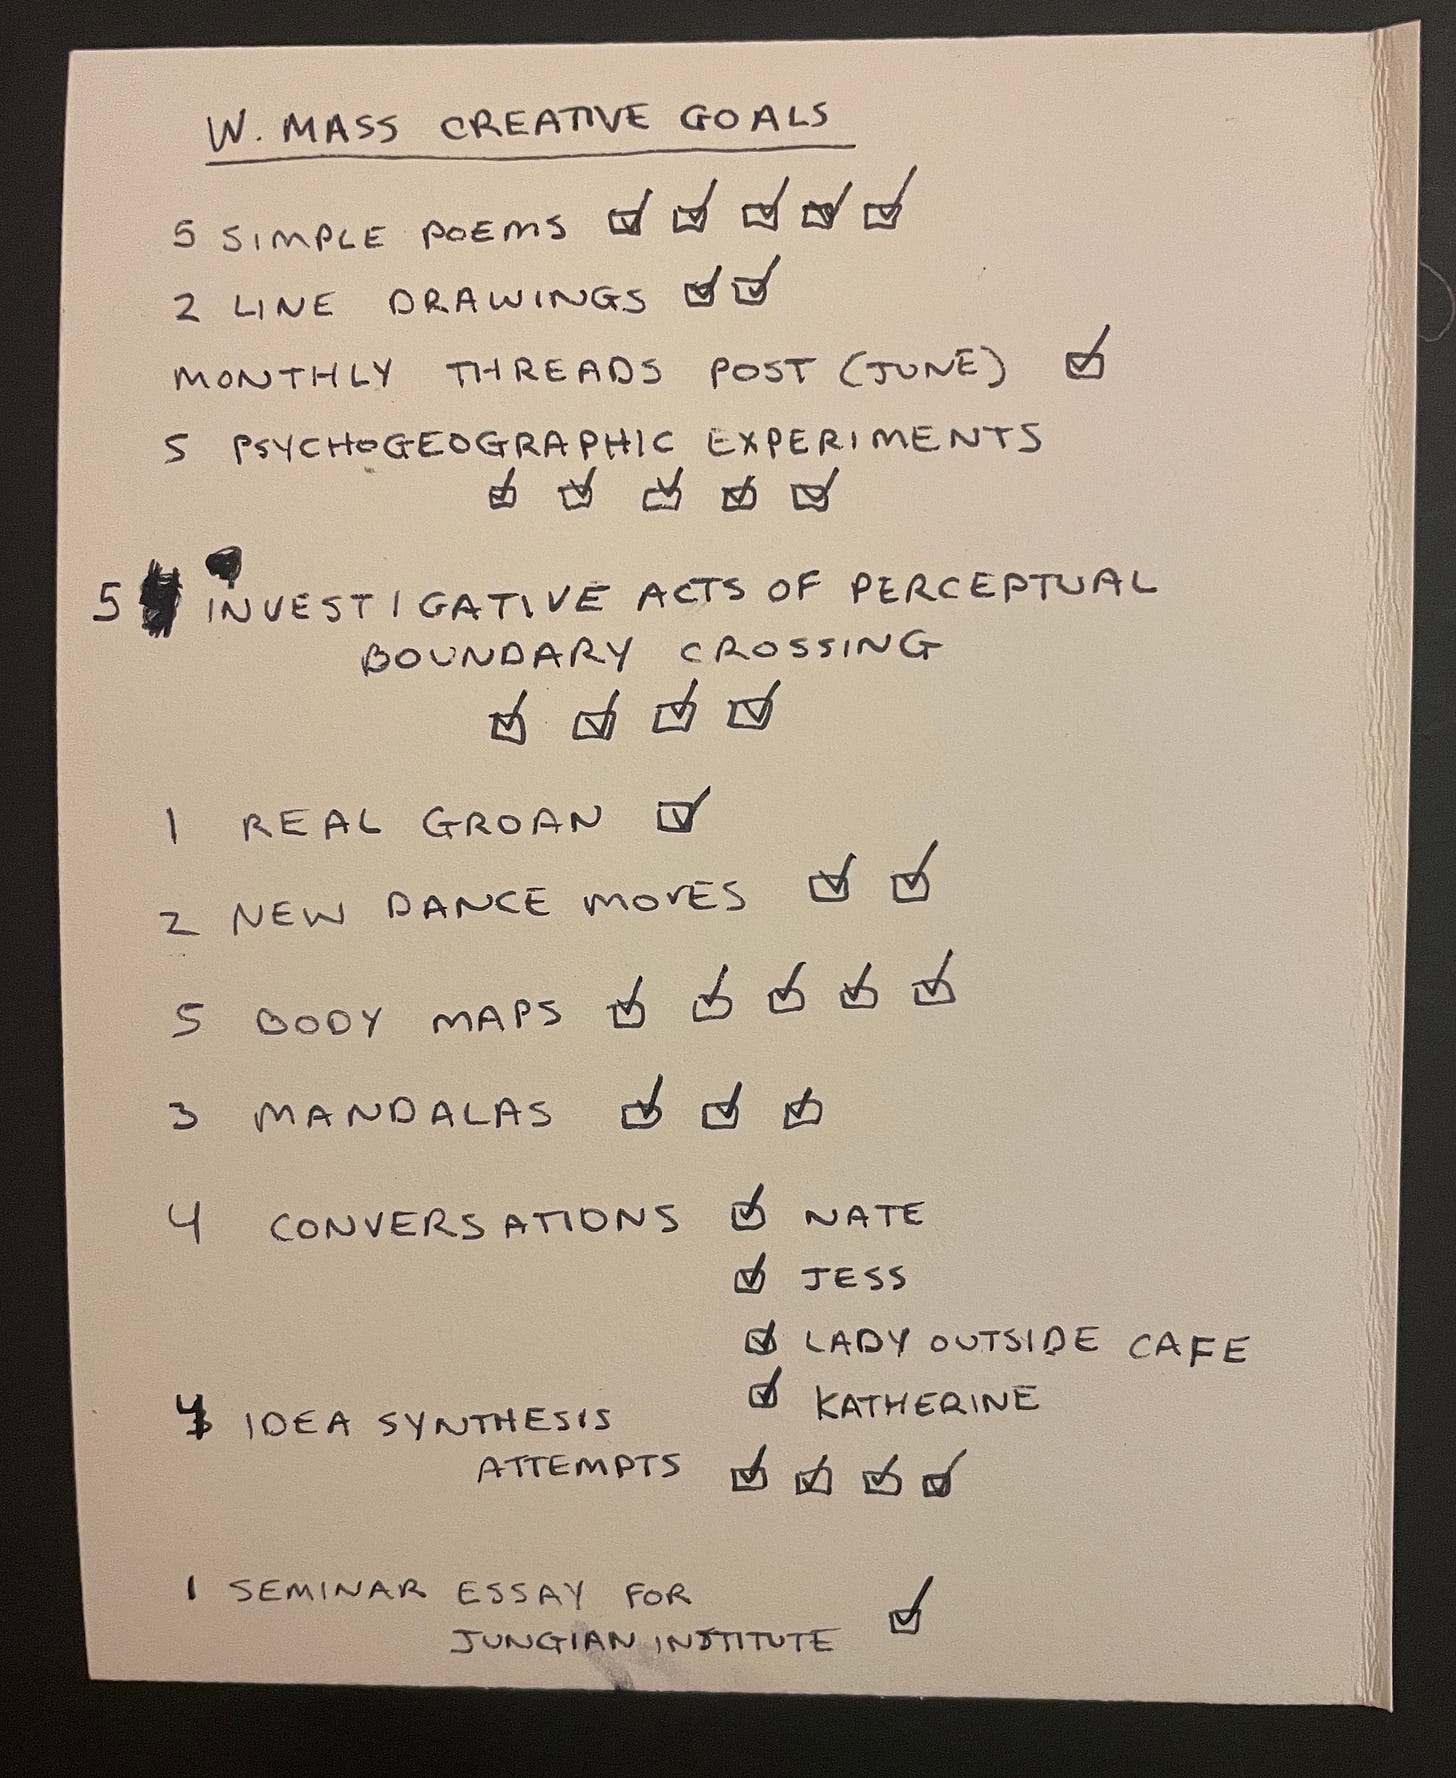 W. MASS CREATIVE GOALS
5 SIMPLE POEMS ☑ ☑ ☑ ☑ ☑
2 LINE DRAWINGS ☑ ☑
MONTHLY THREADS POST (JUNE) ☑
5 PSYCHOGEOGRAPHIC EXPERIMENTS
☑ ☑ ☑ ☑ ☑
5 INVESTIGATIVE ACTS OF PERCEPTUAL
BOUNDARY CROSSING
☑ ☑ ☑ ☑
1 REAL GROAN ☑
2 NEW DANCE MOVES ☑ ☑
5 BODY MAPS ☑ ☑ ☑ ☑ ☑
3 MANDALAS ☑ ☑ ☑
4 CONVERSATIONS ☑ NATE
☑ JESS
☑ LADY OUTSIDE CAFE
☑ KATHERINE
4 IDEA SYNTHESIS
ATTEMPTS ☑ ☑ ☑ ☑
1 SEMINAR ESSAY FOR
JUNGIAN INSTITUTE ☑